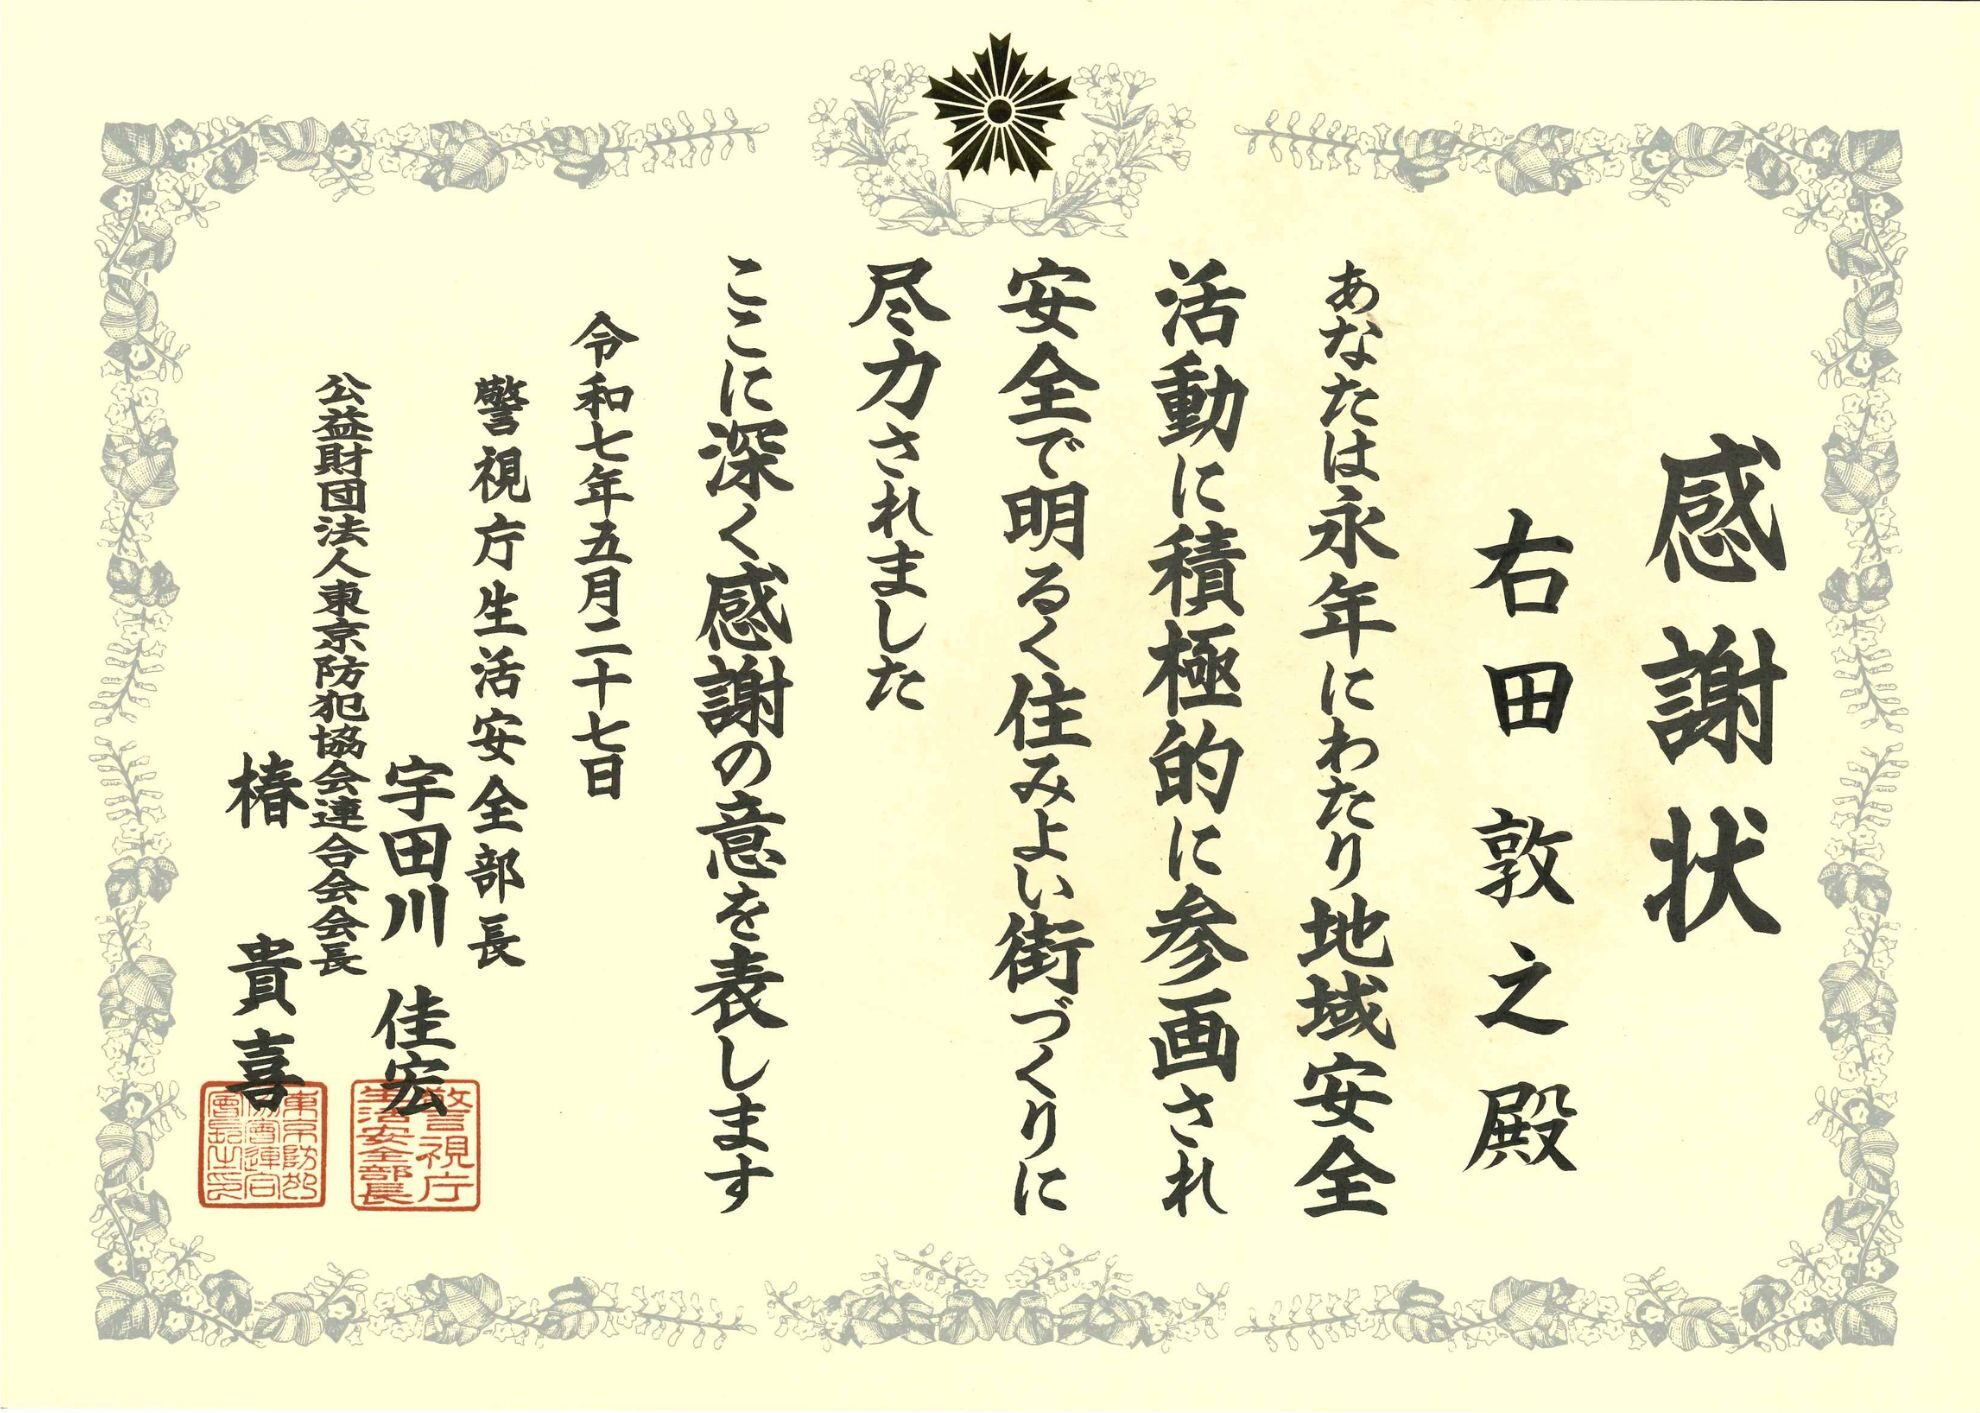 感謝状
右田敦之殿
あなたは永年にわたり地域安全
活動に積極的に参画され
安全で明るく住みよい街づくりに
尽力されました
ここに深く感謝の意を表します
令和七年五月二十七日
警視庁生活安全部長
宇田川佳宏
警視庁
生活安全部長
公益財団法人東京防犯協会連合会会長
椿貴喜
東京防犯
協會連合
會長之印